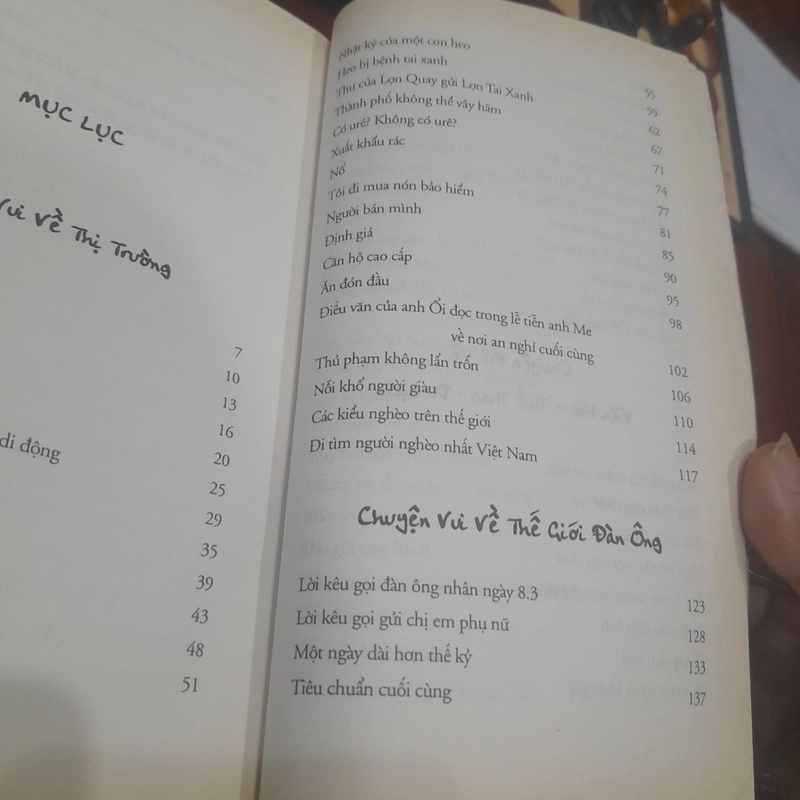 MỤC LỤC
Vui Về Thị Trường
7
10
13
16
di động 20
25
29
35
39
43
48
51
Nhật ký của một con heo 55
Heo bị bệnh tai xanh 59
Thư của Lợn Quay gửi Lợn Tai Xanh 62
Thành phố không thể vây hãm 67
Có urê? Không có urê? 71
Xuất khẩu rác 74
Nổ 77
Tôi đi mua nón bảo hiểm 81
Người bán mình 85
Định giá 90
Căn hộ cao cấp 95
Ăn đón đầu 98
Điếu văn của anh Ổi đọc trong lễ tiễn anh Me
về nơi an nghỉ cuối cùng 102
Thủ phạm không lẩn trốn 106
Nỗi khổ người giàu 110
Các kiểu nghèo trên thế giới 114
Đi tìm người nghèo nhất Việt Nam 117
Chuyện Vui Về Thế Giới Đàn Ông
Lời kêu gọi đàn ông nhân ngày 8.3 123
Lời kêu gọi gửi chị em phụ nữ 128
Một ngày dài hơn thế kỷ 133
Tiêu chuẩn cuối cùng 137